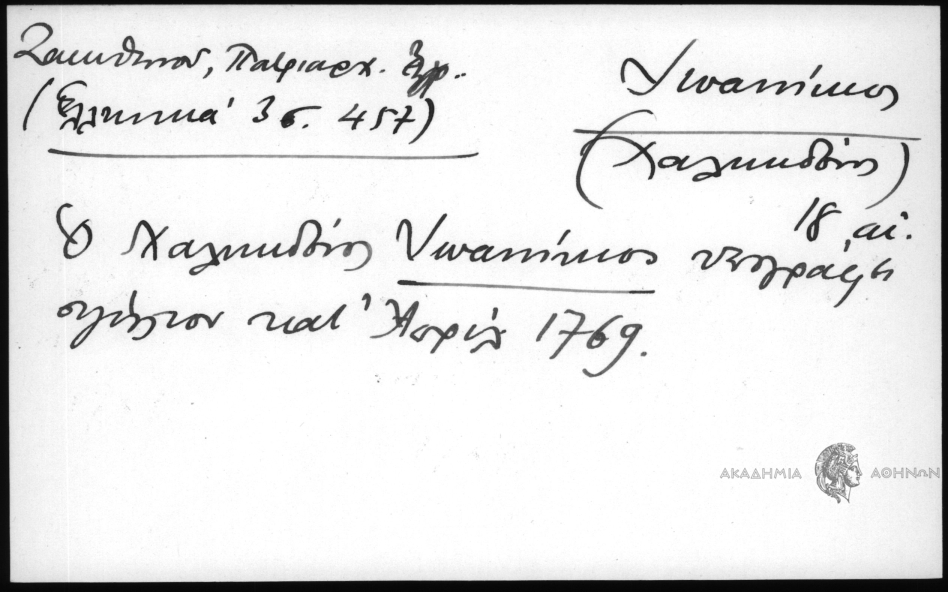 Ζακυθηνού, Πατριαρχ. Έγγρ.
(Ελληνικά 3 σ. 457)
Ιωαννίκιος
(Χαλκηδόνος)
18 αι.
Ο Χαλκηδόνος Ιωαννίκιος υπογράφει
σιγίλλιον κατ' Απρίλ 1769.
ΑΚΑΔΗΜΙΑ ΑΘΗΝΩΝ